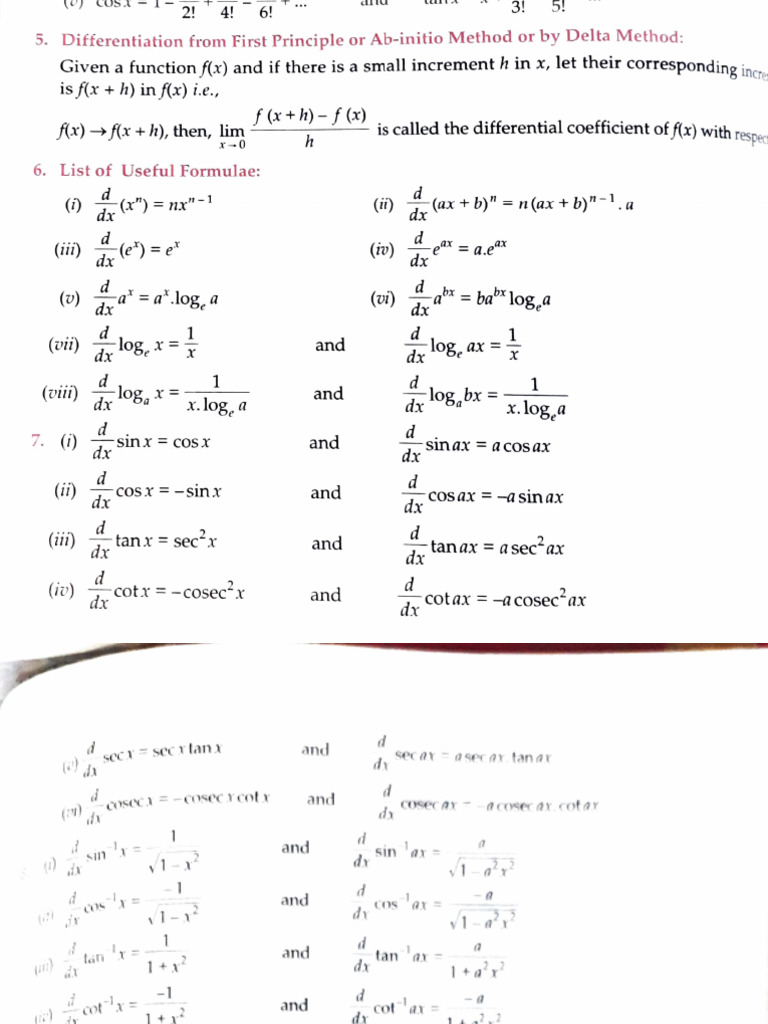 (v) cos x = 1 – 2! + 4! – 6! + ... and tan x 3! 5!
5. Differentiation from First Principle or Ab-initio Method or by Delta Method:
Given a function f(x) and if there is a small increment h in x, let their corresponding incre
is f(x + h) in f(x) i.e.,
f(x) → f(x + h), then, lim x→0 f (x + h) – f (x) / h is called the differential coefficient of f(x) with respec
6. List of Useful Formulae:
(i) d/dx (xⁿ) = nxⁿ⁻¹ (ii) d/dx (ax + b)ⁿ = n (ax + b)ⁿ⁻¹ . a
(iii) d/dx (eˣ) = eˣ (iv) d/dx e^ax = a.e^ax
(v) d/dx aˣ = aˣ.logₑ a (vi) d/dx a^bx = ba^bx logₑa
(vii) d/dx logₑ x = 1/x and d/dx logₑ ax = 1/x
(viii) d/dx logₐ x = 1/x.logₑ a and d/dx logₐbx = 1/x.logₑa
7. (i) d/dx sin x = cos x and d/dx sin ax = a cos ax
(ii) d/dx cos x = –sin x and d/dx cos ax = –a sin ax
(iii) d/dx tan x = sec²x and d/dx tan ax = a sec² ax
(iv) d/dx cot x = –cosec² x and d/dx cot ax = –a cosec² ax
(v) d/dx sec x = sec x tan x and d/dx sec ax = a sec ax. tan ax
(vi) d/dx cosec x = –cosec x cot x and d/dx cosec ax = –a cosec ax. cot ax
(i) d/dx sin⁻¹x = 1/√(1 – x²) and d/dx sin⁻¹ax = a/√(1 – a²x²)
(ii) d/dx cos⁻¹x = –1/√(1 – x²) and d/dx cos⁻¹ax = –a/√(1 – a²x²)
(iii) d/dx tan⁻¹x = 1/1 + x² and d/dx tan⁻¹ax = a/1 + a²x²
(iv) d/dx cot⁻¹x = –1/1 + x² and d/dx cot⁻¹ax = –a/1 + a²x²